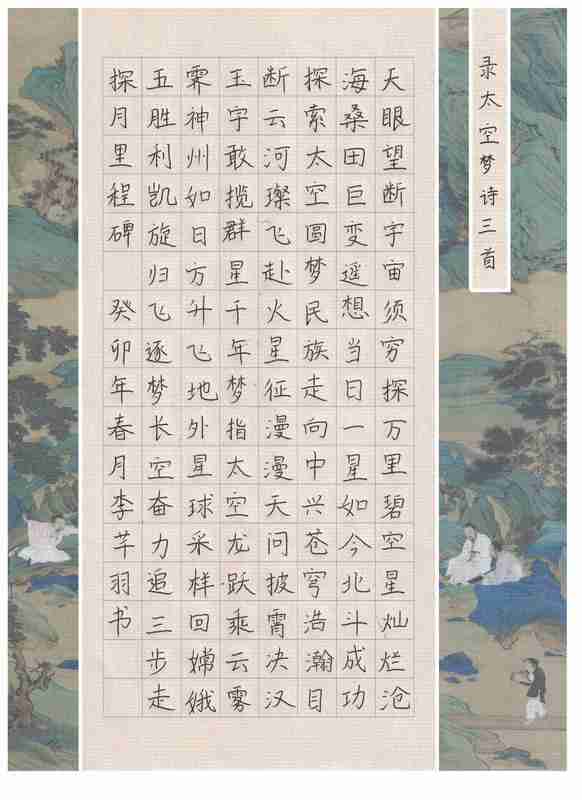 录太空梦诗三首
天眼望断宇宙须穷探万里碧空星灿烂沧
海桑田巨变遥想当日一星如今北斗成功
探索太空圆梦民族走向中兴苍穹浩瀚目
断云河璨飞赴火星征漫漫天问披霄决汉
玉宇敢揽群星千年梦指太空龙跃乘云雾
霁神州如日方升飞地外星球采样回嫦娥
五胜利凯旋归飞逐梦长空奋力追三步走
探月里程碑 癸卯年春月李芊羽书